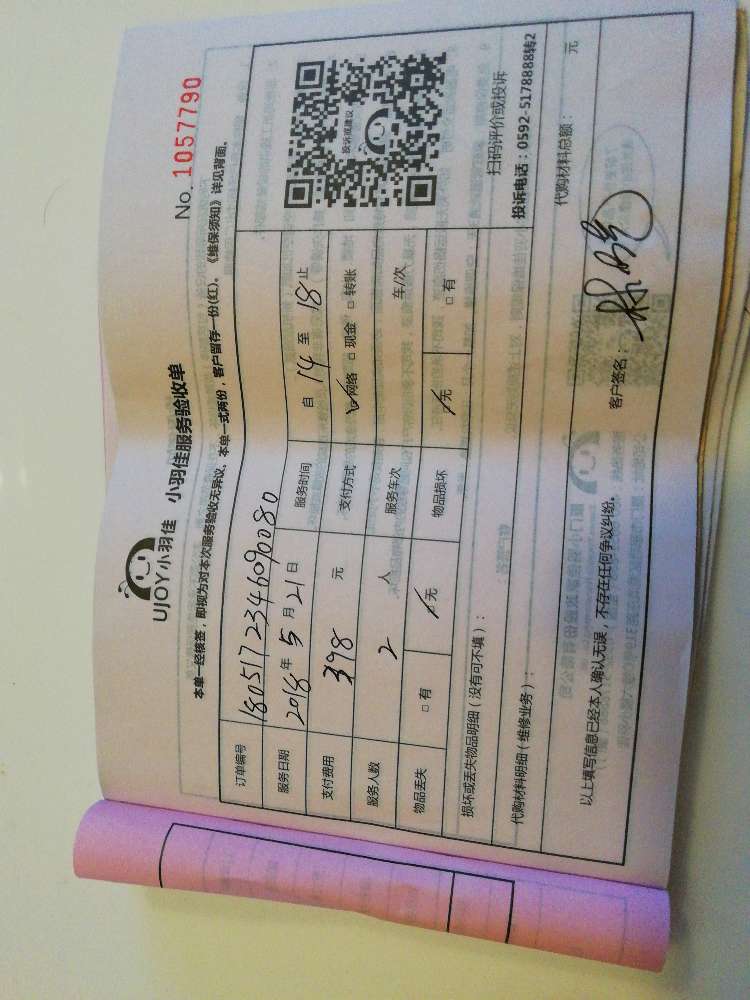 No. 1057790
UJOY小羽佳 小羽佳服务验收单
本单一经核签，即视为对本次服务验收无异议、本单一式两份，客户留存一份(红)。《维保须知》详见背面。
订单编号 1805172346090080
服务日期 2018年5月21日 服务时间 自 14 至 18 止
支付费用 398 元 支付方式 ☑网络 □现金 □转账
服务人数 2 人 服务车次 车/次
物品丢失 □有 ☑无 物品损坏 ☑无 □有
投诉或建议
扫码评价或投诉
投诉电话：0592-5178888转2
损坏或丢失物品明细（没有可不填）：
代购材料明细（维修业务）： 代购材料总额： 元
以上填写信息已经本人确认无误，不存在任何争议纠纷。 客户签名：